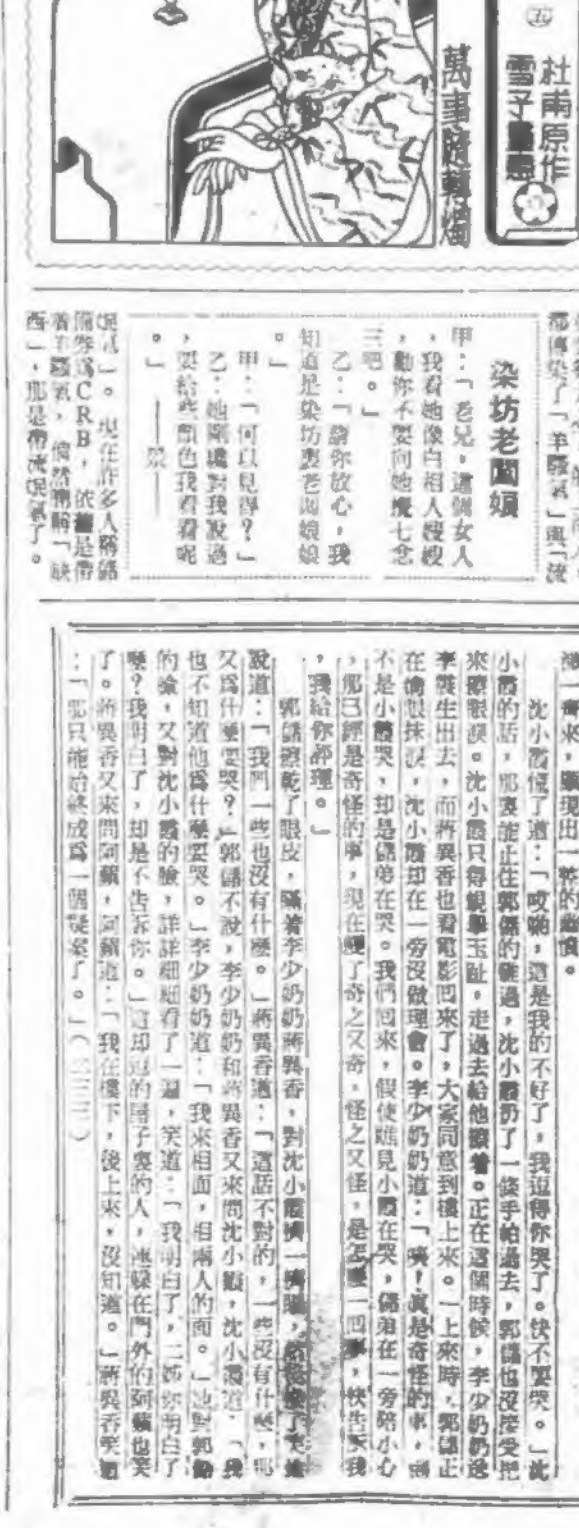 杜甫原作
雪子畫意
萬事隨轉燭
都傳染了「羊騷氣」與「流
染坊老闆娘
甲：「老兄，這個女人
，我看她像白相人嫂嫂
，勸你不要向她瞎七念
三吧。」
乙：「請你放心，我
知道是染坊裏老闆娘娘
。」
甲：「何以見得？」
乙：她剛纔對我說過
，要給些顏色我看看呢
。」
氓氣」。現在許多人稱鈔
備券爲CRB，依舊是帶
着羊騷氣，
西」，那是帶流氓氣了。
一齊來，顯現出一
沈小霞慌了道：「哎喲，這是我的不好了，我逗得你哭了。快不要哭。」沈
小霞的話，那裏能止住郭儲的難過，沈小霞扔了一條手帕過去，郭儲也沒接受把
來擦眼淚。沈小霞只得親舉玉趾，走過去給他擦着。正在這個時候，李少奶奶送
李醫生出去，而蔣異香也看電影回來了，大家同意到樓上來。一上來時，郭儲正
在淌眼抹淚，沈小霞却在一旁沒做理會。李少奶奶道：「咦！眞是奇怪的事，
不是小霞哭，却是儲弟在哭。我們回來，假使瞧見小霞在哭，儲弟在一旁陪小心
，那已經是奇怪的事，現在變了奇之又奇，怪之又怪，是怎麼一回事，快告訴我
，我給你評理。」
郭儲擦乾了眼皮，瞞着李少奶奶蔣異香，對沈小霞擠一擠眼，
說道：「我們一些也沒有什麼。」蔣異香道：「這話不對的，一些沒有什麼，那
又爲什麼要哭？」郭儲不說，李少奶奶和蔣異香又來問沈小霞，沈小霞道：「我
也不知道他爲什麼要哭。」李少奶奶道：「我來相面，相兩人的面。」她對郭儲
的臉，又對沈小霞的臉，詳詳細細看了一遍，笑道：「我明白了，二姊你明白了
麼？我明白了，却是不告訴你。」這却逗的屋子裏的人，連躲在門外的阿蘋也笑
了。蔣異香又來問阿蘋，阿蘋道：「我在樓下，後上來，沒知道。」蔣異香笑道
：「那只能始終成爲一個疑案了。」